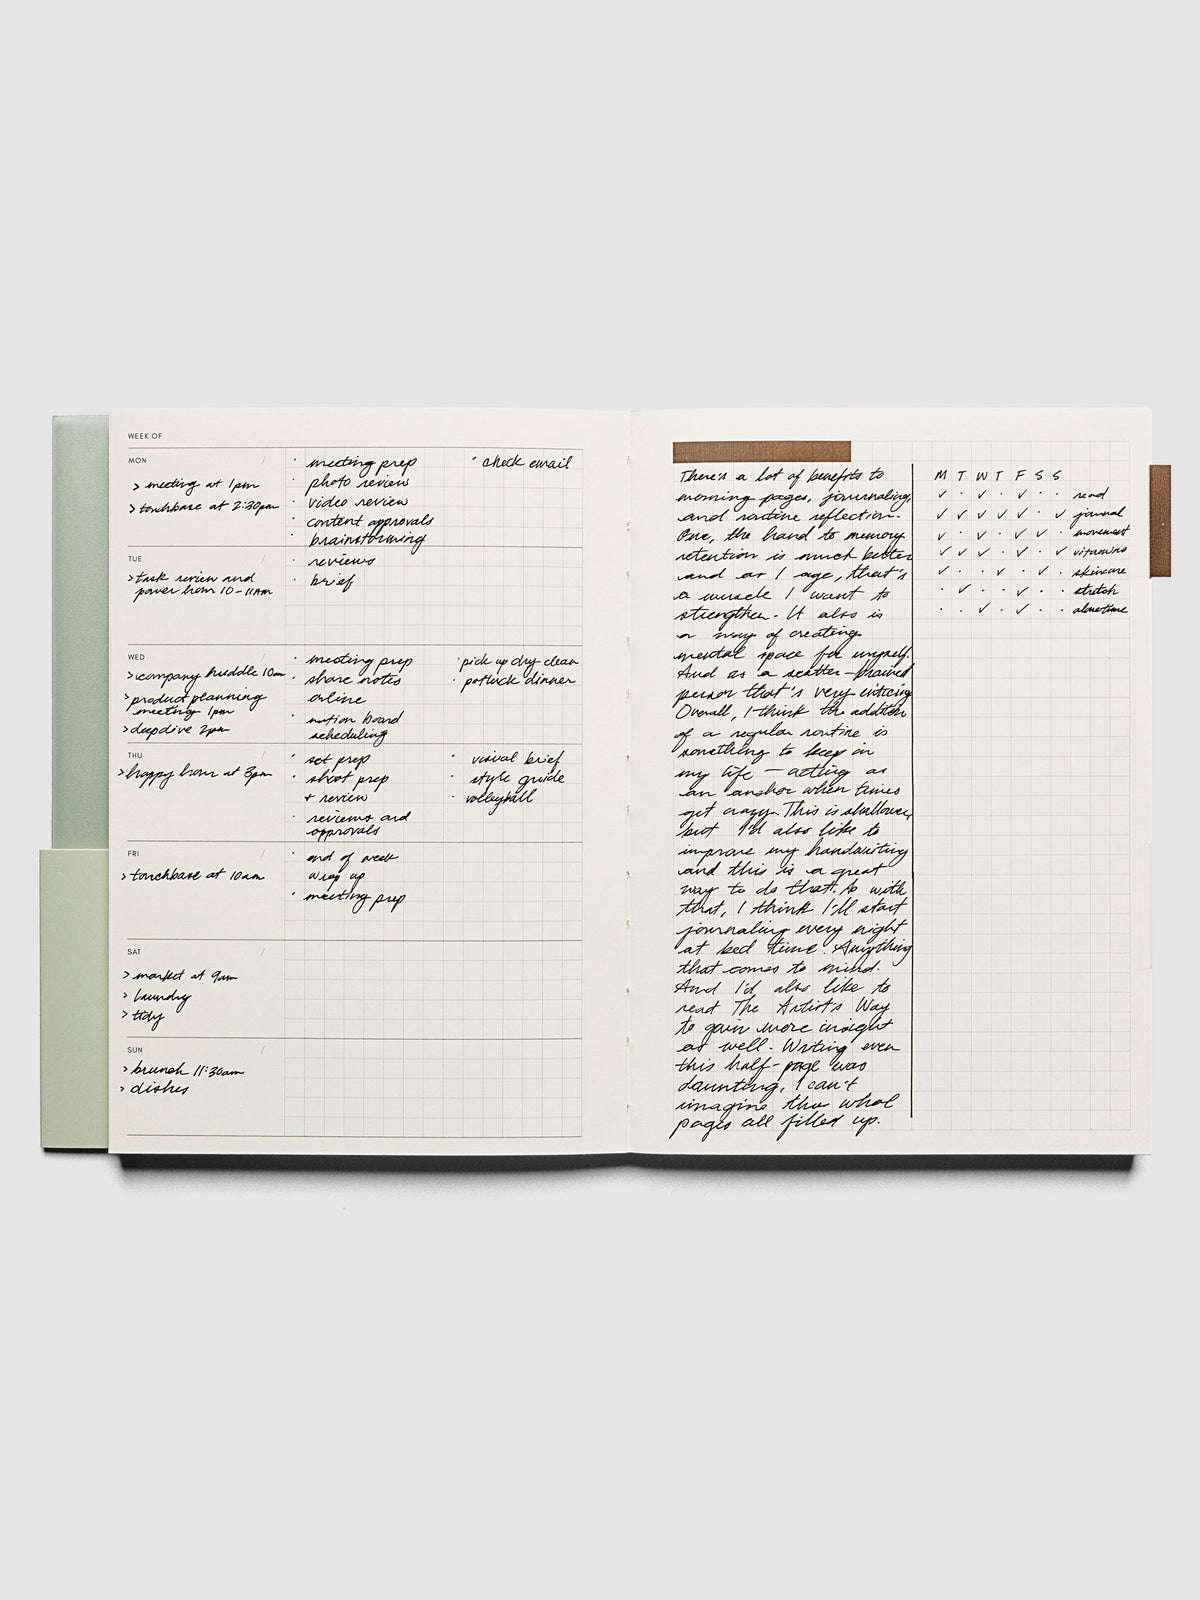 WEEK OF
MON /
> meeting at 1pm
> touchbase at 2:30pm
· meeting prep
· photo review
· video review
· content approvals
· brainstorming
· check email
TUE /
> task review and
power hour 10-11AM
· reviews
· brief
WED /
> company huddle 10am
> product planning
meeting 1pm
> deep dive 2pm
· meeting prep
· share notes
online
· notion board
scheduling
· pick up dry clean
· potluck dinner
THU /
> happy hour at 3pm
· set prep
· shoot prep
+ review
· reviews and
approvals
· visual brief
· style guide
· volleyball
FRI /
> touchbase at 10am
· end of week
wrap up
· meeting prep
SAT /
> market at 9am
> laundry
> tidy
SUN /
> brunch 11:30am
> dishes
There's a lot of benefits to
morning pages, journaling,
and routine reflection.
One, the hand to memory
retention is much better
and as I age, that's
a muscle I want to
strengthen. It also is
a way of creating
mental space for myself.
And as a scatter-brained
person that's very enticing
Overall, I think the addition
of a regular routine is
something to keep in
my life — acting as
an anchor when times
get crazy. This is shallower,
but I'd also like to
improve my handwriting
and this is a great
way to do that. So with
that, I think I'll start
journaling every night
at bed time. Anything
that comes to mind.
And I'd also like to
read The Artist's Way
to gain more insight
as well. Writing even
this half-page was
daunting, I can't
imagine three whole
pages all filled up.
M T W T F S S
✓ · ✓ · ✓ · · read
✓ ✓ ✓ ✓ ✓ · ✓ journal
✓ · ✓ · ✓ ✓ · movement
✓ ✓ ✓ · ✓ · ✓ vitamins
✓ · · ✓ · ✓ · skincare
· ✓ · · ✓ · · stretch
· · ✓ · ✓ · · alone time